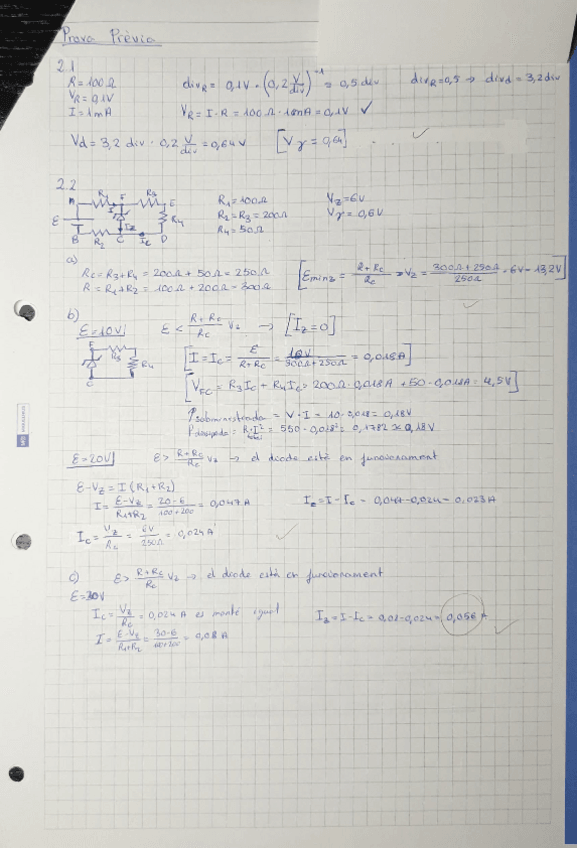 Prova Prèvia
2.1
R = 100 Ω
V_R = 0,1V
I = 1mA
div_R = 0,1V · (0,2 V/div)^-1 = 0,5 div
div_R = 0,5 → div_d = 3,2 div
V_R = I·R = 100 Ω · 1mA = 0,1V ✓
Vd = 3,2 div · 0,2 V/div = 0,64 V [Vγ = 0,64]
2.2
A R1 F R3 E
E Iz R4
B R2 C Ic D
R1 = 100Ω
R2 = R3 = 200Ω
R4 = 50Ω
Vz = 6V
Vγ = 0,6V
a)
Rc = R3 + R4 = 200Ω + 50Ω = 250Ω
R = R1 + R2 = 100Ω + 200Ω = 300Ω
[Emínz = R+Rc/Rc · Vz = 300Ω+250Ω/250Ω · 6V = 13,2V]
b)
E = 10V
E < R+Rc/Rc Vz → [Iz = 0]
F R3 R4 C
[I = Ic = E/R+Rc = 10V/300Ω+250Ω = 0,018A]
[V_FC = R3 Ic + R4 Ic = 200Ω · 0,018A + 50 · 0,018A = 4,5V]
= V · I = 10 · 0,018 = 0,18V
P = R · I² = 550 · 0,018² = 0,1782 ≈ 0,18V
E = 20V
E > R+Rc/Rc Vz → el díode està en funcionament
E - Vz = I (R1 + R2)
I = E-Vz/R1+R2 = 20-6/100+200 = 0,047A
Iz = I - Ic = 0,047 - 0,024 = 0,023A
Ic = Vz/Rc = 6V/250Ω = 0,024A
c) E > R+Rc/Rc Vz → el díode està en funcionament
E = 30V
Ic = Vz/Rc = 0,024 A es manté igual
Iz = I - Ic = 0,08 - 0,024 = 0,056 A
I = E-Vz/R1+R2 = 30-6/100+200 = 0,08 A